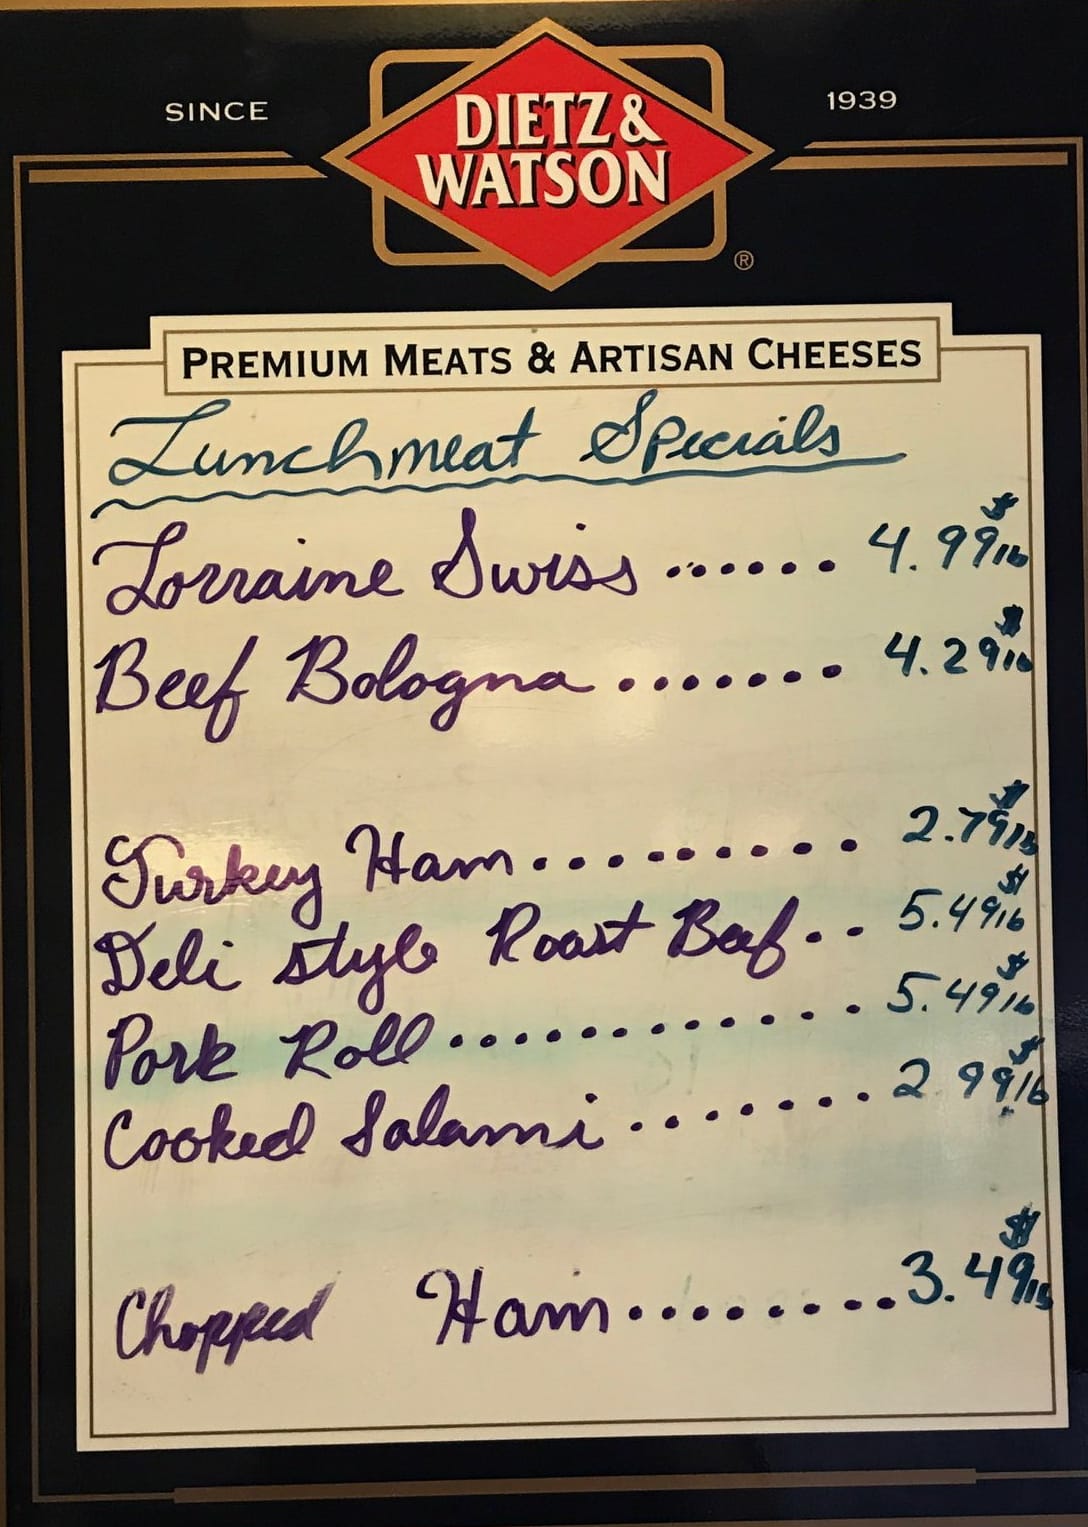 SINCE
DIETZ &
WATSON
1939
®
PREMIUM MEATS & ARTISAN CHEESES
Lunchmeat Specials
Lorraine Swiss ...... 4.99 $ lb
Beef Bologna ....... 4.29 $ lb
Turkey Ham .......... 2.79 $ lb
Deli style Roast Beef .. 5.49 $ lb
Pork Roll ............ 5.49 $ lb
Cooked Salami ....... 2.99 $ lb
Chopped Ham ........ 3.49 $ lb